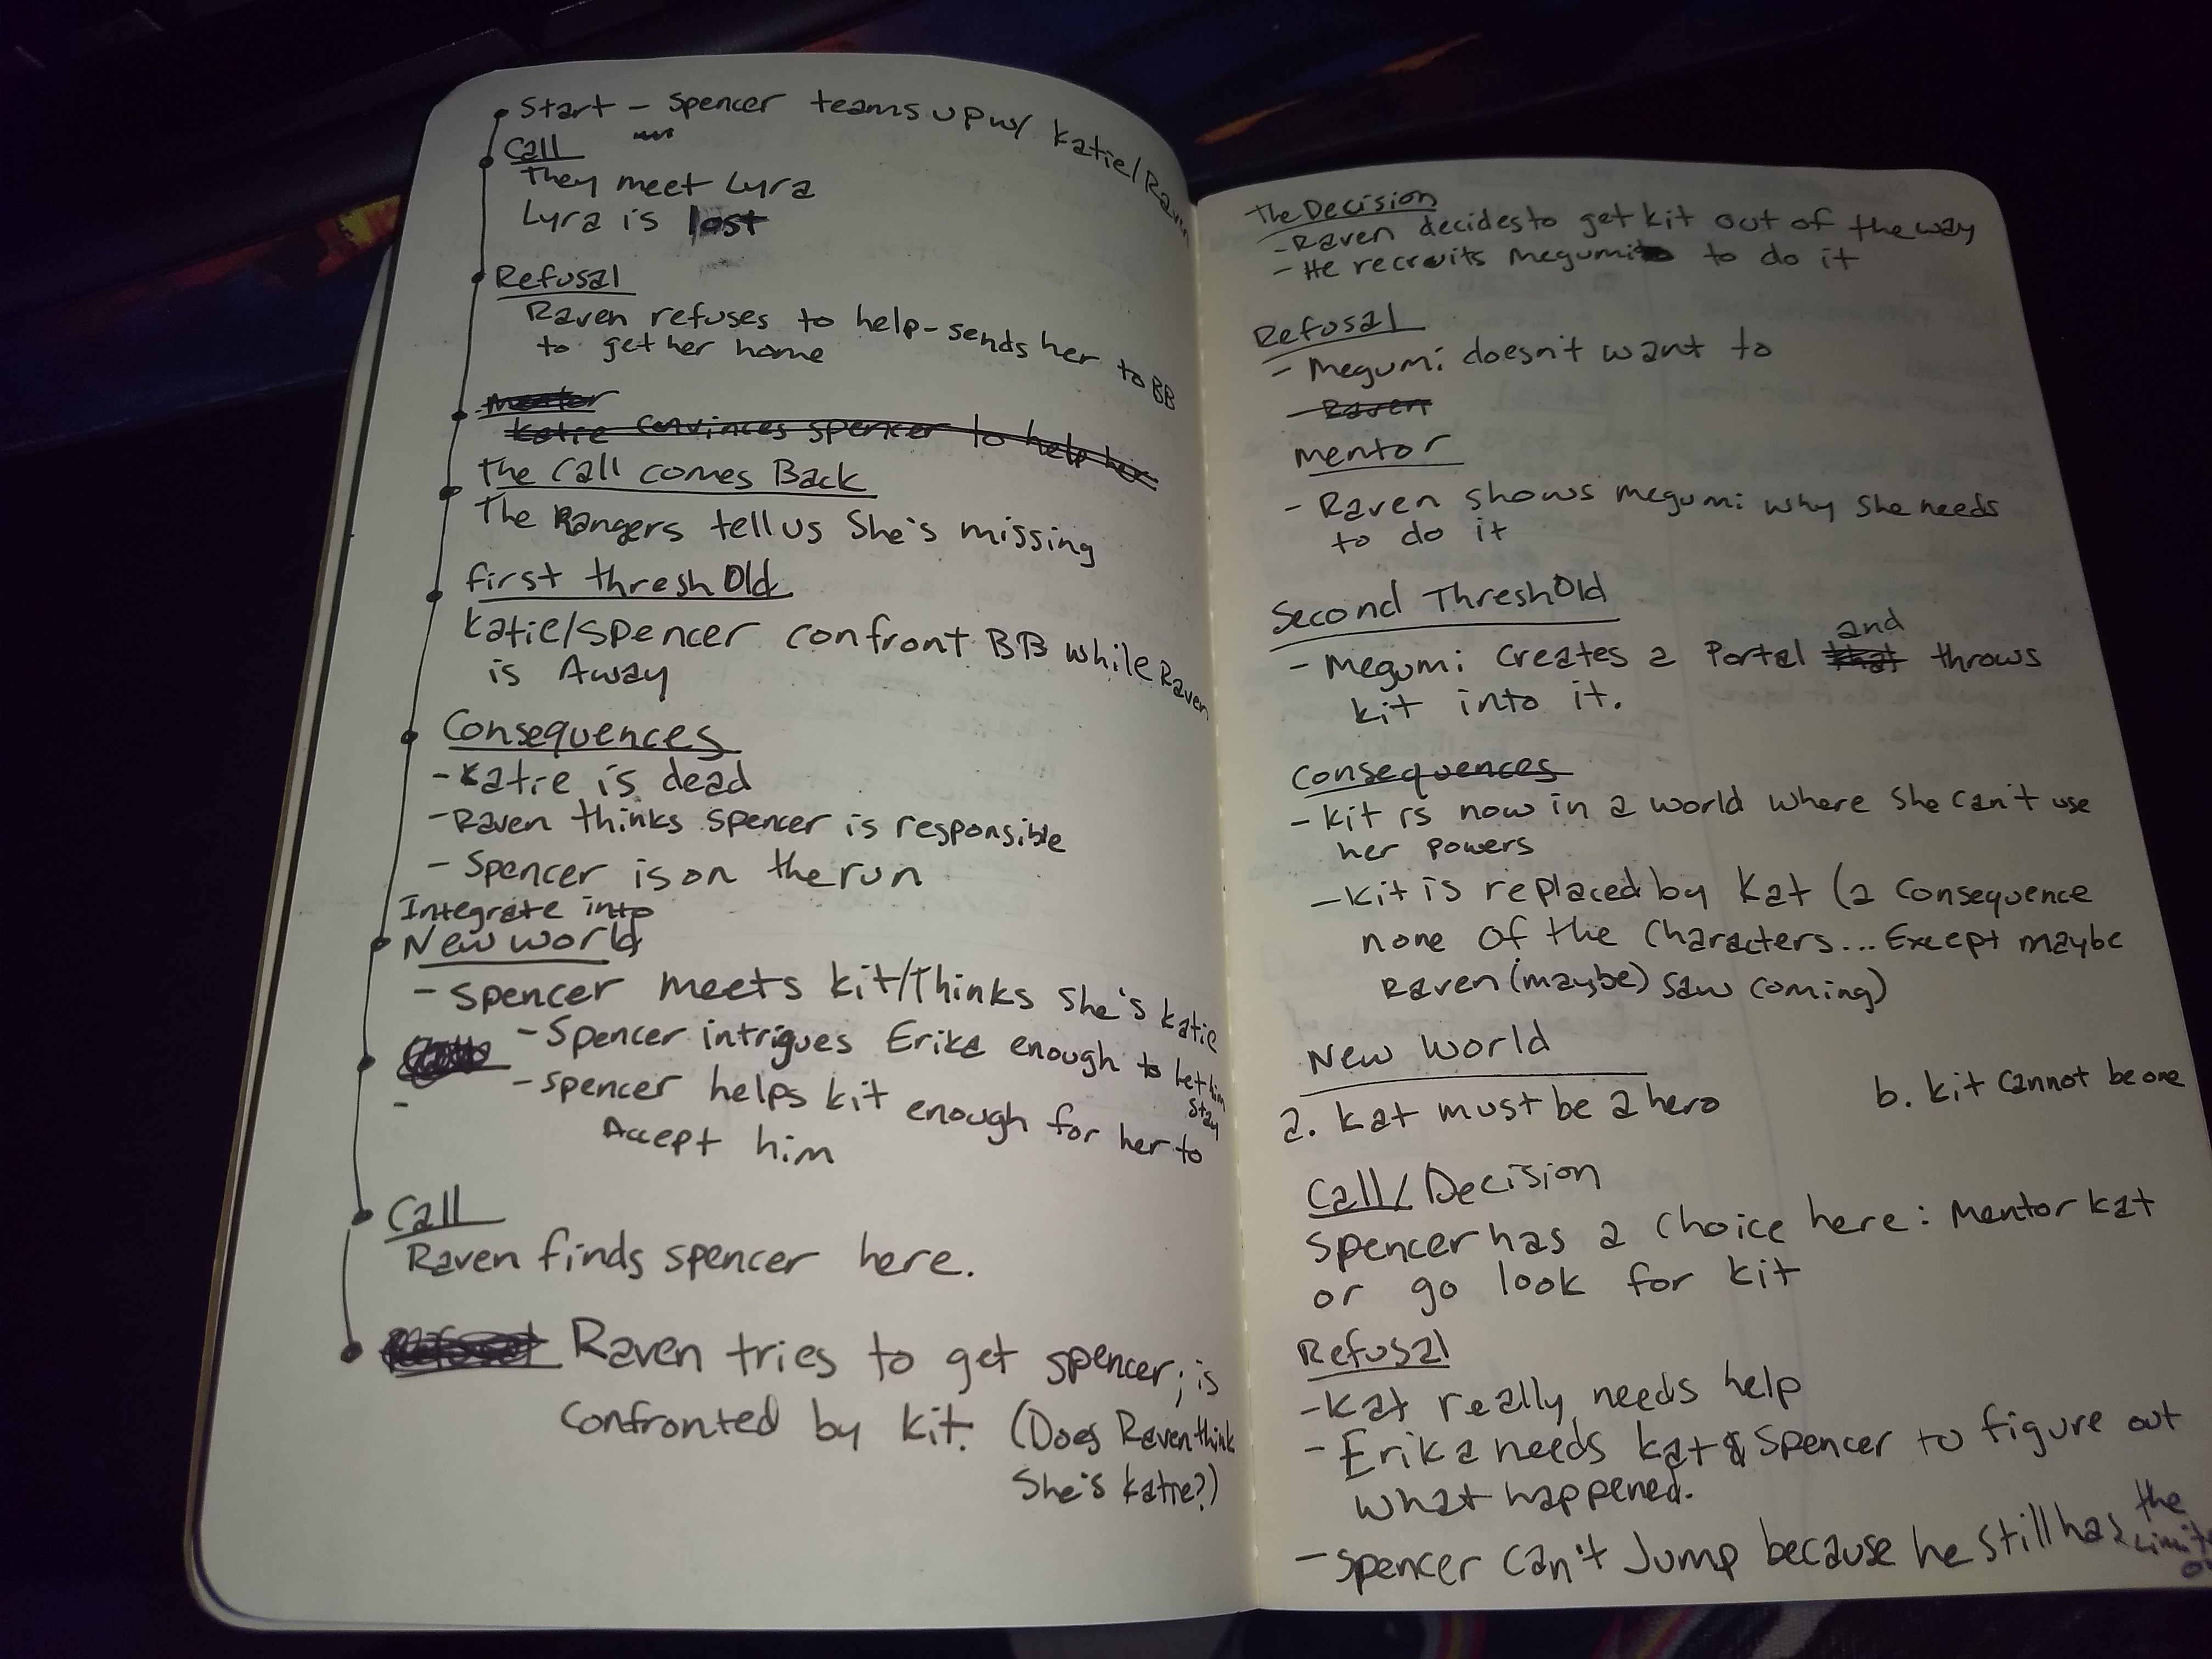 Start - Spencer teams up w/ Katie/Raven
Call
They meet Lyra
Lyra is lost
Refusal
Raven refuses to help - sends her to BB
to get her home
Mentor
Katie convinces Spencer to help her
The Call comes Back
The Rangers tell us She's missing
first threshold
Katie/Spencer confront BB while Raven
is Away
Consequences
- Katie is dead
- Raven thinks Spencer is responsible
- Spencer is on the run
Integrate into
New world
- Spencer meets kit/Thinks she's katie
- Spencer intrigues Erika enough to let him
stay
- Spencer helps kit enough for her to
Accept him
Call
Raven finds spencer here.
Refusal Raven tries to get spencer; is
confronted by kit. (Does Raven think
She's Katie?)
The Decision
- Raven decides to get kit out of the way
- He recruits Megumi to do it
Refusal
- Megumi doesn't want to
- Raven
mentor
- Raven shows megumi why She needs
to do it
Second Threshold
and
- Megumi Creates a Portal that throws
kit into it.
Consequences
- Kit is now in a world where she can't use
her powers
- Kit is replaced by Kat (a consequence
none of the Characters... Except maybe
Raven (maybe) saw coming)
New World
a. Kat must be a hero b. Kit cannot be one
Call/Decision
Spencer has a choice here: Mentor Kat
or go look for kit
Refusal
- Kat really needs help
- Erika needs Kat & Spencer to figure out
what happened.
the
- Spencer can't Jump because he still has